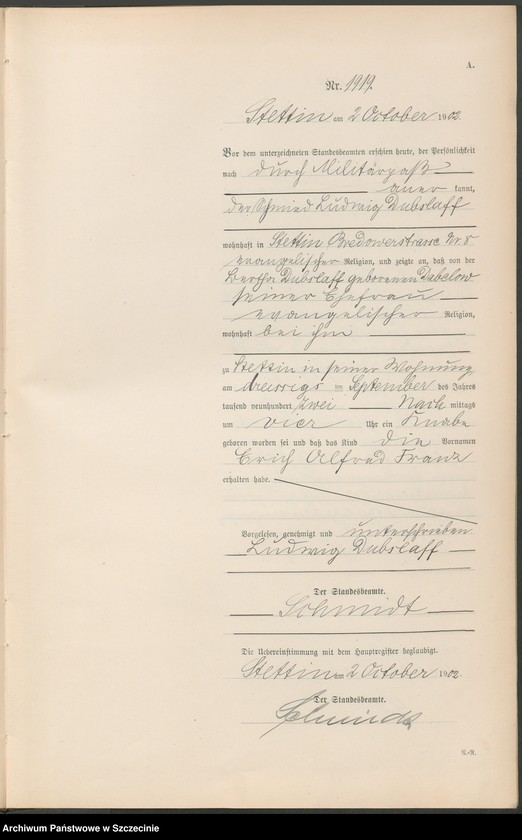 A.
Nr. 1919.
Stettin am 2 October 1902.
Vor dem unterzeichneten Standesbeamten erschien heute, der Persönlichkeit
nach durch Militärpaß
aner kannt,
der Schmied Ludwig Dubslaff
wohnhaft in Stettin Bredowerstrasse Nr. 5
evangelischer Religion, und zeigte an, daß von der
Bertha Dubslaff geborenen Dabelow
seiner Ehefrau
evangelischer Religion,
wohnhaft bei ihm
zu Stettin in seiner Wohnung
am dreissigs ten September des Jahres
tausend neunhundert zwei Nach mittags
um vier Uhr ein Knabe
geboren worden sei und daß das Kind die Vornamen
Erich Alfred Franz
erhalten habe.
Vorgelesen, genehmigt und unterschrieben
Ludwig Dubslaff
Der Standesbeamte.
Schmidt
Die Uebereinstimmung mit dem Hauptregister beglaubigt.
Stettin am 2 October 1902.
Der Standesbeamte.
Schmidt
Archiwum Państwowe w Szczecinie